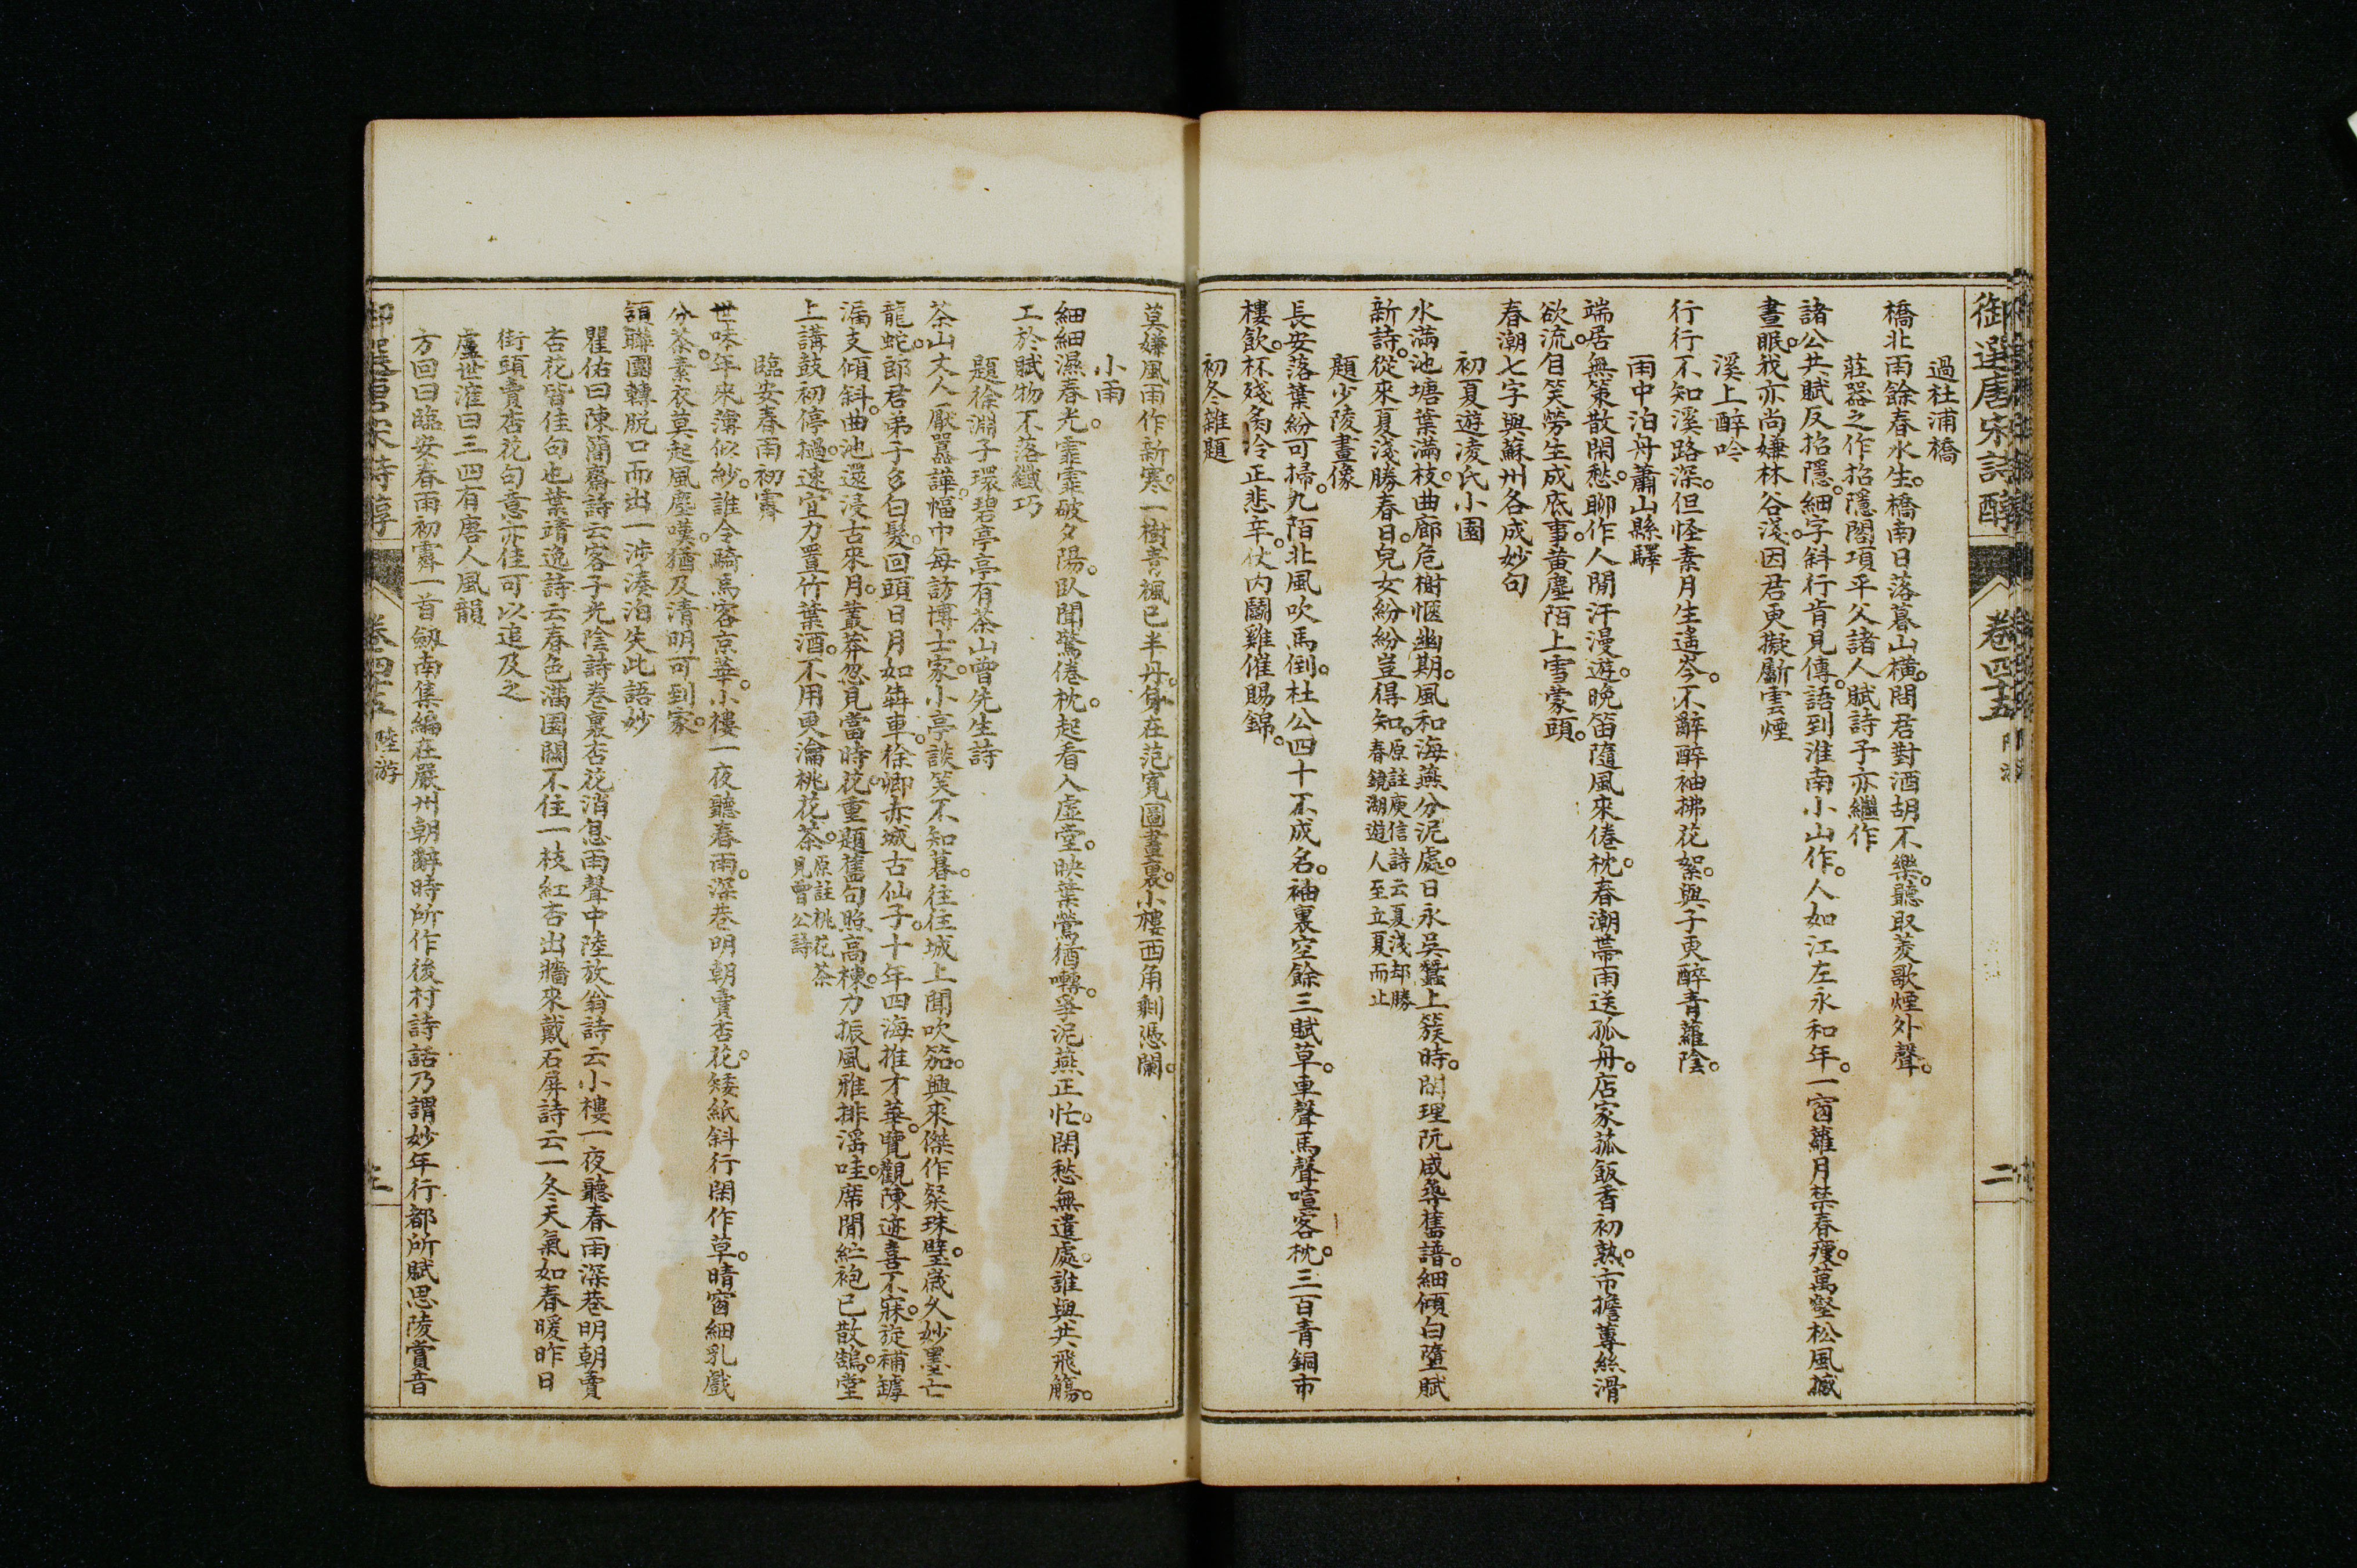 御選唐宋詩醇 卷四十五 二
過杜浦橋
橋北雨餘春水生。橋南日落暮山橫。問君對酒胡不樂。聽取菱歌煙外聲。
莊器之作招隱閣項平父諸人賦詩予亦繼作
諸公共賦反招隱。細字斜行肯見傳。語到淮南小山作。人如江左永和年。一窗蘿月禁春瘦。萬壑松風撼
晝眠。我亦尚嫌林谷淺。因君更擬斸雲煙
溪上醉吟
行行不知溪路深。但怪素月生遙岑。不辭醉袖拂花絮。與子更醉青蘿陰。
雨中泊舟蕭山縣驛
端居無策散閑愁。聊作人閒汗漫遊。晚笛隨風來倦枕。春潮帶雨送孤舟。店家菰飯香初熟。市擔蓴絲滑
欲流。自笑勞生成底事。黃塵陌上雪蒙頭。
春潮七字與蘇州各成妙句
初夏遊凌氏小園
水滿池塘葉滿枝。曲廊危榭愜幽期。風和海燕分泥處。日永吳蠶上簇時。閒理阮咸尋舊譜。細傾白墮賦
新詩。從來夏淺勝春日。兒女紛紛豈得知。原註庾信詩云夏淺却勝春鏡湖遊人至立夏而止
題少陵畫像
長安落葉紛可掃。九陌北風吹馬倒。杜公四十不成名。袖裏空餘三賦草。車聲馬聲喧客枕。三百青銅市
樓飲。杯殘炙冷正悲辛。仗內鬭雞催賜錦。
初冬雜題
莫嫌風雨作新寒。一樹青楓已半丹。身在范寬圖畫裏。小樓西角剩憑闌。
小雨
細細濕春光。霏霏破夕陽。臥聞驚倦枕。起看入虛堂。映葉鶯猶囀。爭泥燕正忙。閑愁無遣處。誰與共飛觴。
工於賦物不落纖巧
題徐淵子環碧亭亭有茶山曾先生詩
茶山丈人厭囂譁。幅巾每訪博士家。小亭談笑不知暮。往往城上聞吹笳。興來傑作粲珠璧。歲久妙墨亡
龍蛇。郎君弟子多白髮。回頭日月如犇車。徐卿赤城古仙子。十年四海推才華。覽觀陳迹喜不寐。旋補罅
漏支傾斜。曲池還浸古來月。叢莽忽見當時花。重題舊句照高棟。力振風雅排淫哇。席閒紅袍已散鵠。堂
上講鼓初停撾。速宜力置竹葉酒。不用更瀹桃花茶。原註桃花茶見曾公詩
臨安春雨初霽
世味年來薄似紗。誰令騎馬客京華。小樓一夜聽春雨。深巷明朝賣杏花。矮紙斜行閑作草。晴窗細乳戲
分茶。素衣莫起風塵嘆。猶及清明可到家。
頷聯圓轉脫口而出一涉湊泊失此語妙
瞿佑曰陳簡齋詩云客子光陰詩卷裏杏花消息雨聲中陸放翁詩云小樓一夜聽春雨深巷明朝賣
杏花皆佳句也葉靖逸詩云春色滿園關不住一枝紅杏出牆來戴石屏詩云一冬天氣如春暖昨日
街頭賣杏花句意亦佳可以追及之
盧世㴶曰三四有唐人風韻
方回曰臨安春雨初霽一首劒南集編在嚴州朝辭時所作後村詩話乃謂妙年行都所賦思陵賞音
卷四十五 陸游